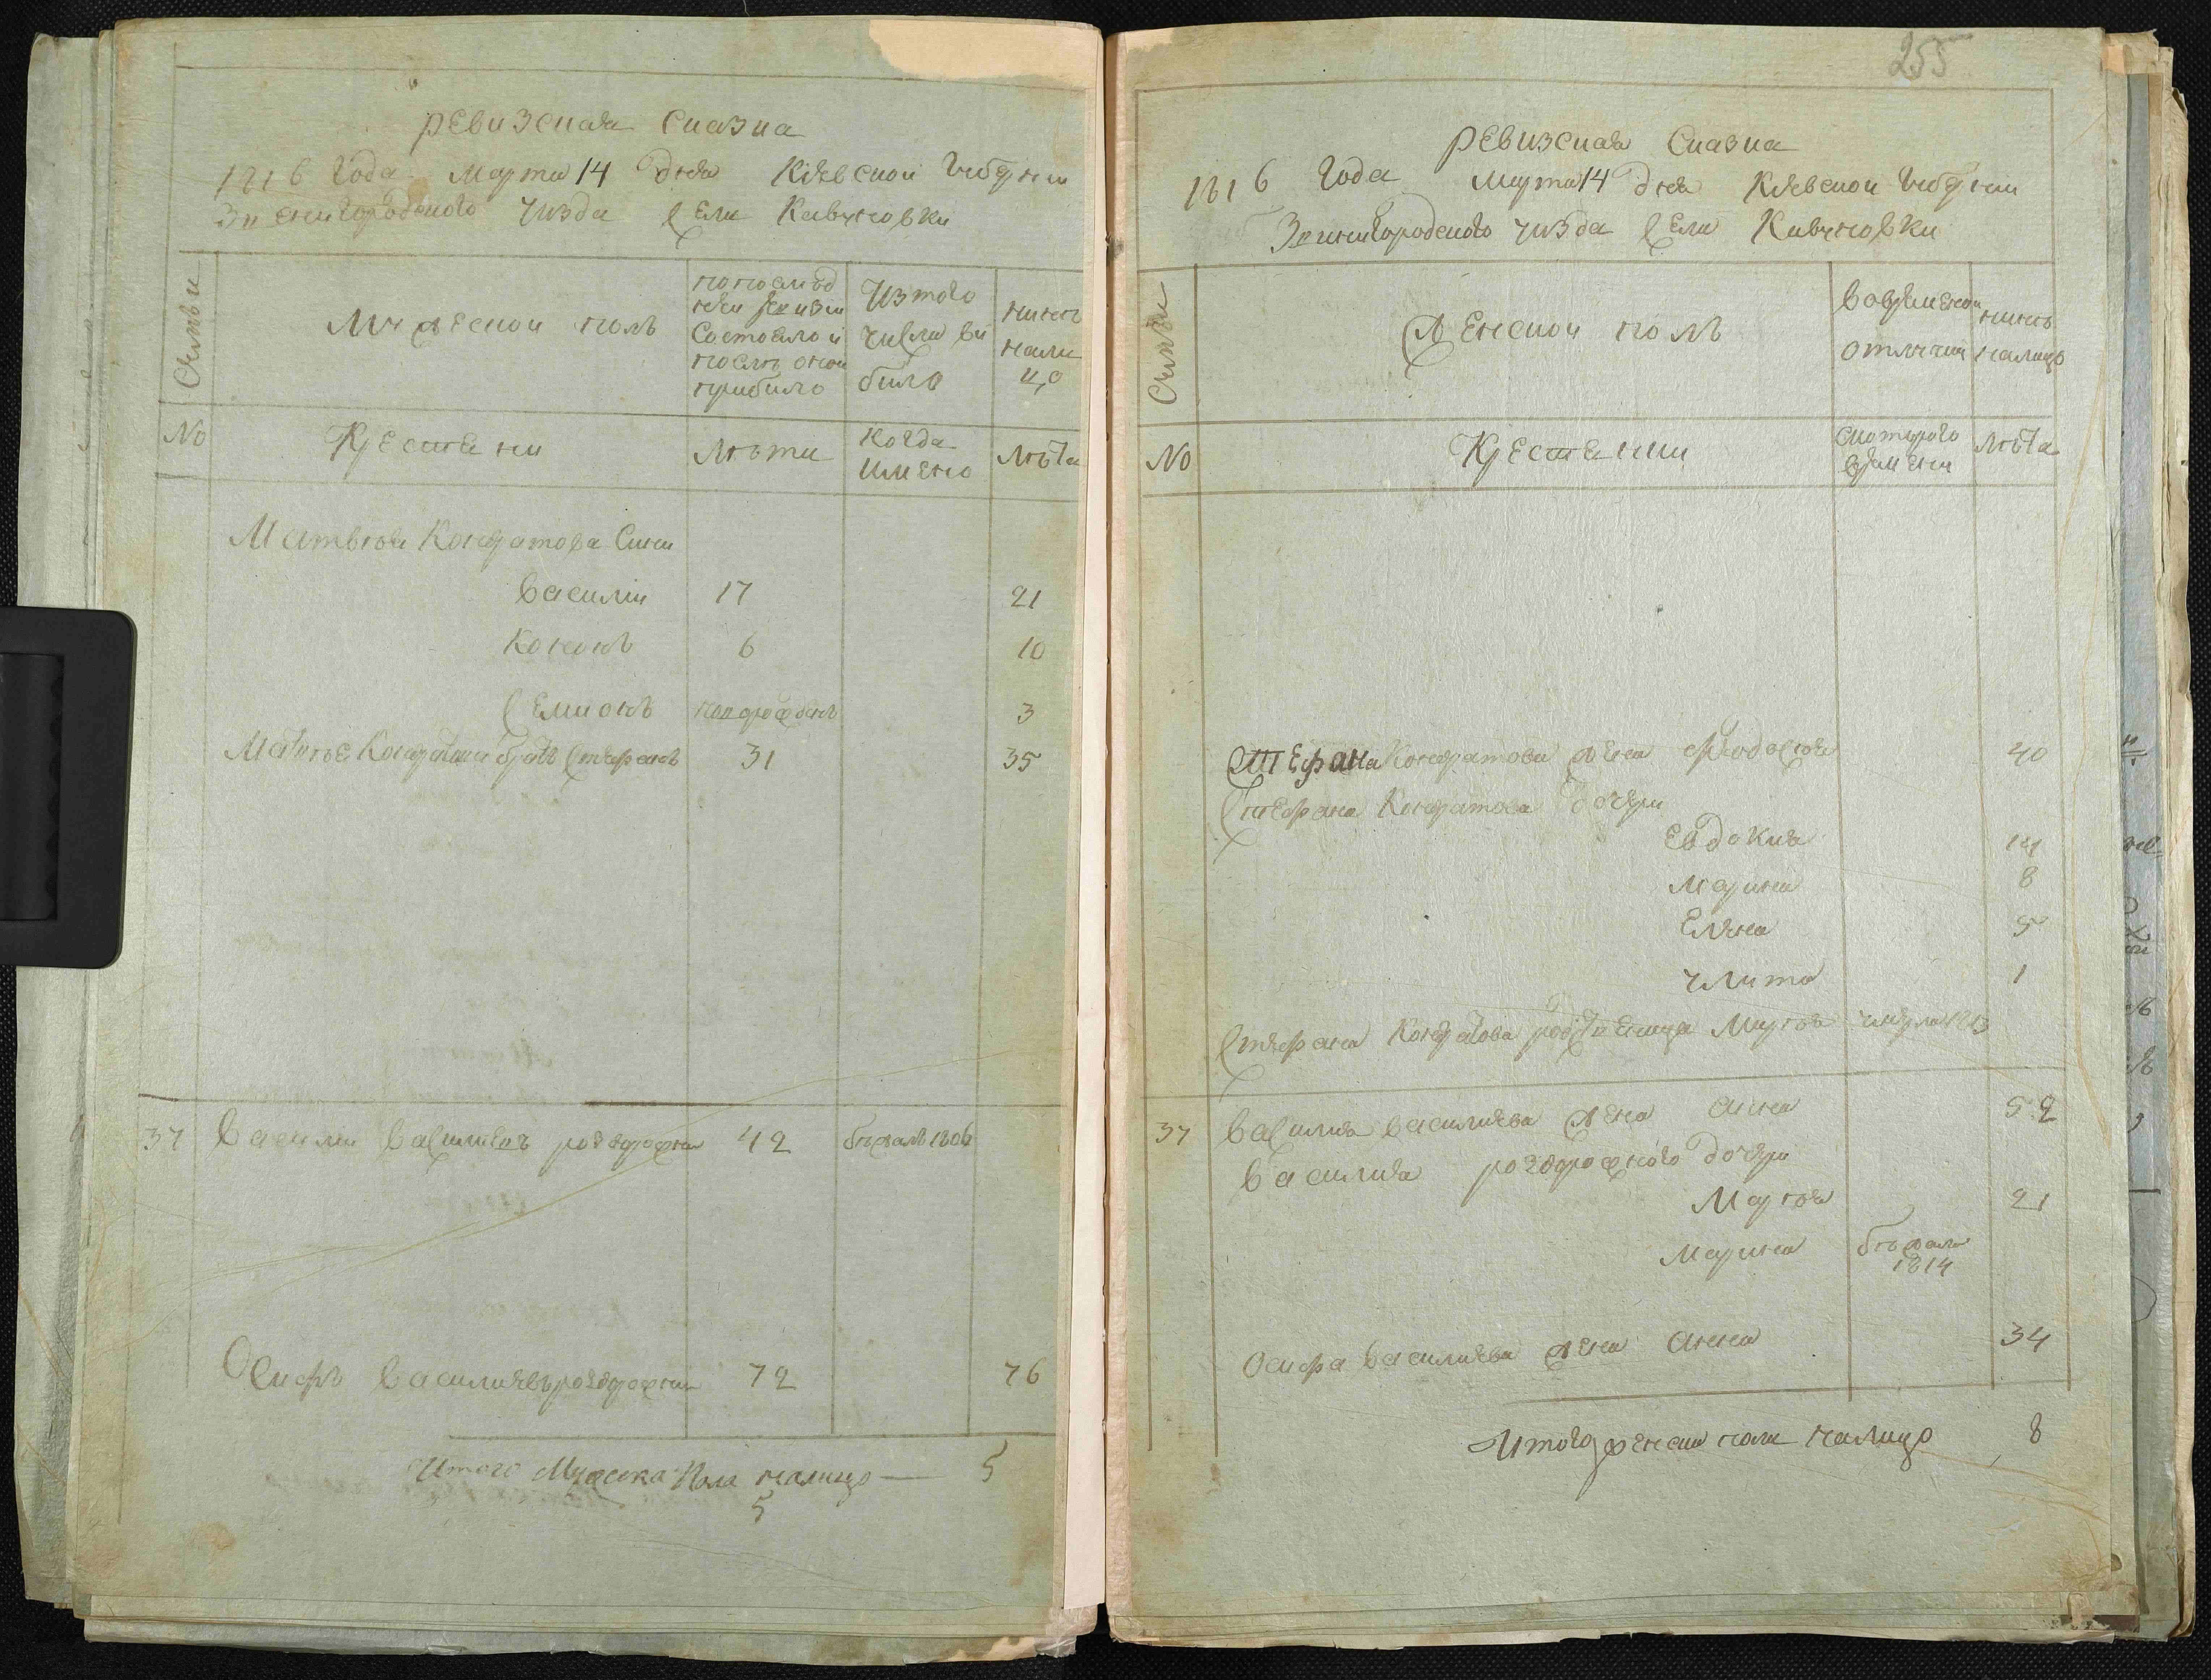 ревизская сказка
1816 года марта 14 дня Киевской губернии
Звенигородского уезда села Кавуновки
Семьи
Мужеской полъ
по послед
ней ревизии
состояло и
после оной
прибыло
Из того
числа вы
было
ныне
нали
цо
No
Крестяни
лета
Когда
имено
лета
Матвея Кондратова сини
василий 17 21
Кононъ 6 10
Семионъ новорожденъ 3
Матвея Кондратова братъ Стефанъ 31 35
37 василий василиевъ 42 бежалъ 1806
Осифъ василиевъ 72 76
Итого Мужеска Пола налицо — 5
5
255
ревизская Сказка
1816 года марта 14 дня Киевской губернии
Звенигородского уезда села Кавуновки
Семьи
Женской полъ
во временой
отлучки
ныне
налицо
No
Крестяни
с которого
времени
лета
Стефана Кондратова жена Феодосия 40
Стефана Кондратова дочери
Евдокия 14
марина 8
Елена 5
улита 1
Стефана Кондратова Мария умерла 1813
37 василия василиева жена анна 52
василия дочери
Мария 21
Марина бежала
1814
Осифа василиева жена анна 34
Итого женска пола налицо 8